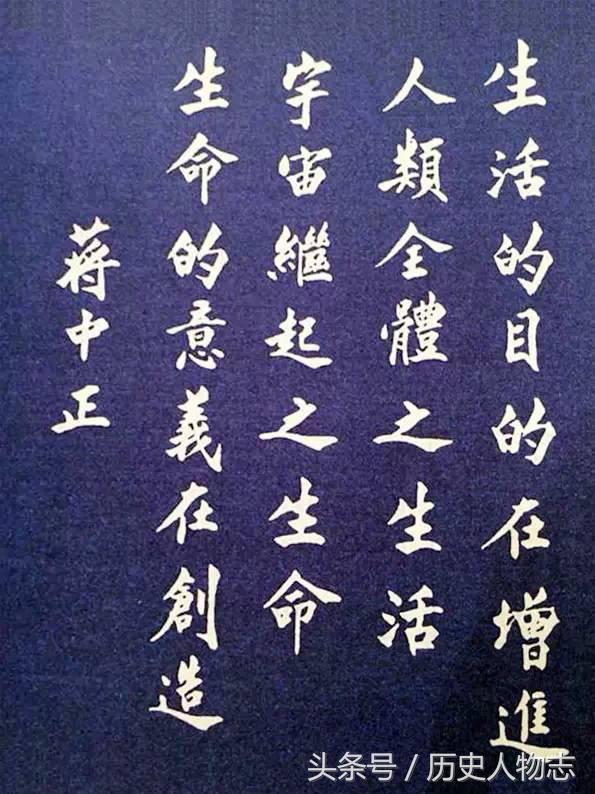 生活的目的在增進
人類全體之生活
生命的意義在創造
宇宙繼起之生命
蔣中正
头条号 / 历史人物志